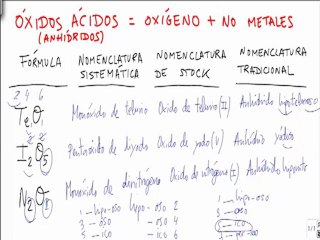 ÓXIDOS ÁCIDOS = OXÍGENO + NO METALES
(ANHÍDRIDOS)
FÓRMULA
NOMENCLATURA SISTEMÁTICA
NOMENCLATURA DE STOCK
NOMENCLATURA TRADICIONAL
2 4 6
Te O₁ Monóxido de telurio Óxido de teluro (II) Anhídrido hipoteluroso
I₂ O₅ Pentaóxido de diyodo Óxido de yodo (V) Anhídrido yódico
N₂ O Monóxido de dinitrógeno Óxido de nitrógeno (I) Anhídrido hiponitroso
1 — hipo-oso hipo-oso 2 1 — hipo-oso
3 — oso — oso 4 3 — oso
5 — ico — ico 6 5 — ico